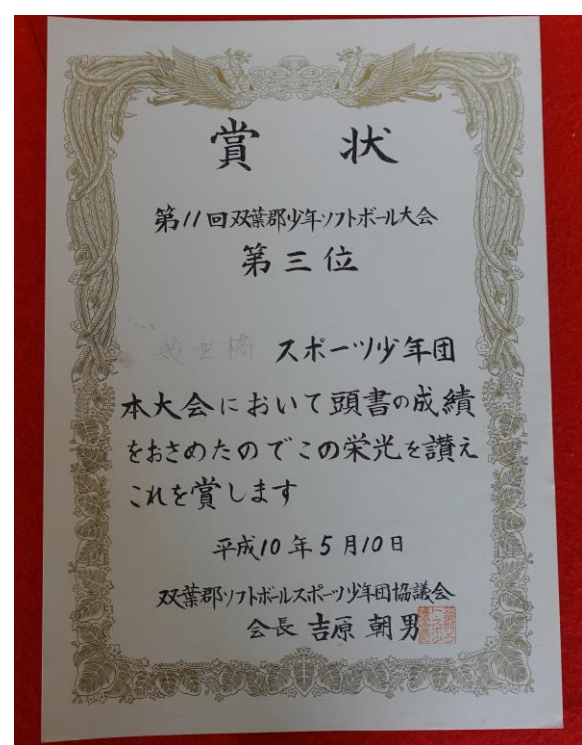 賞状
第11回双葉郡少年ソフトボール大会
第三位
幾世橋 スポーツ少年団
本大会において頭書の成績
をおさめたのでこの栄光を讃え
これを賞します
平成10年5月10日
双葉郡ソフトボールスポーツ少年団協議会
会長 吉原朝男